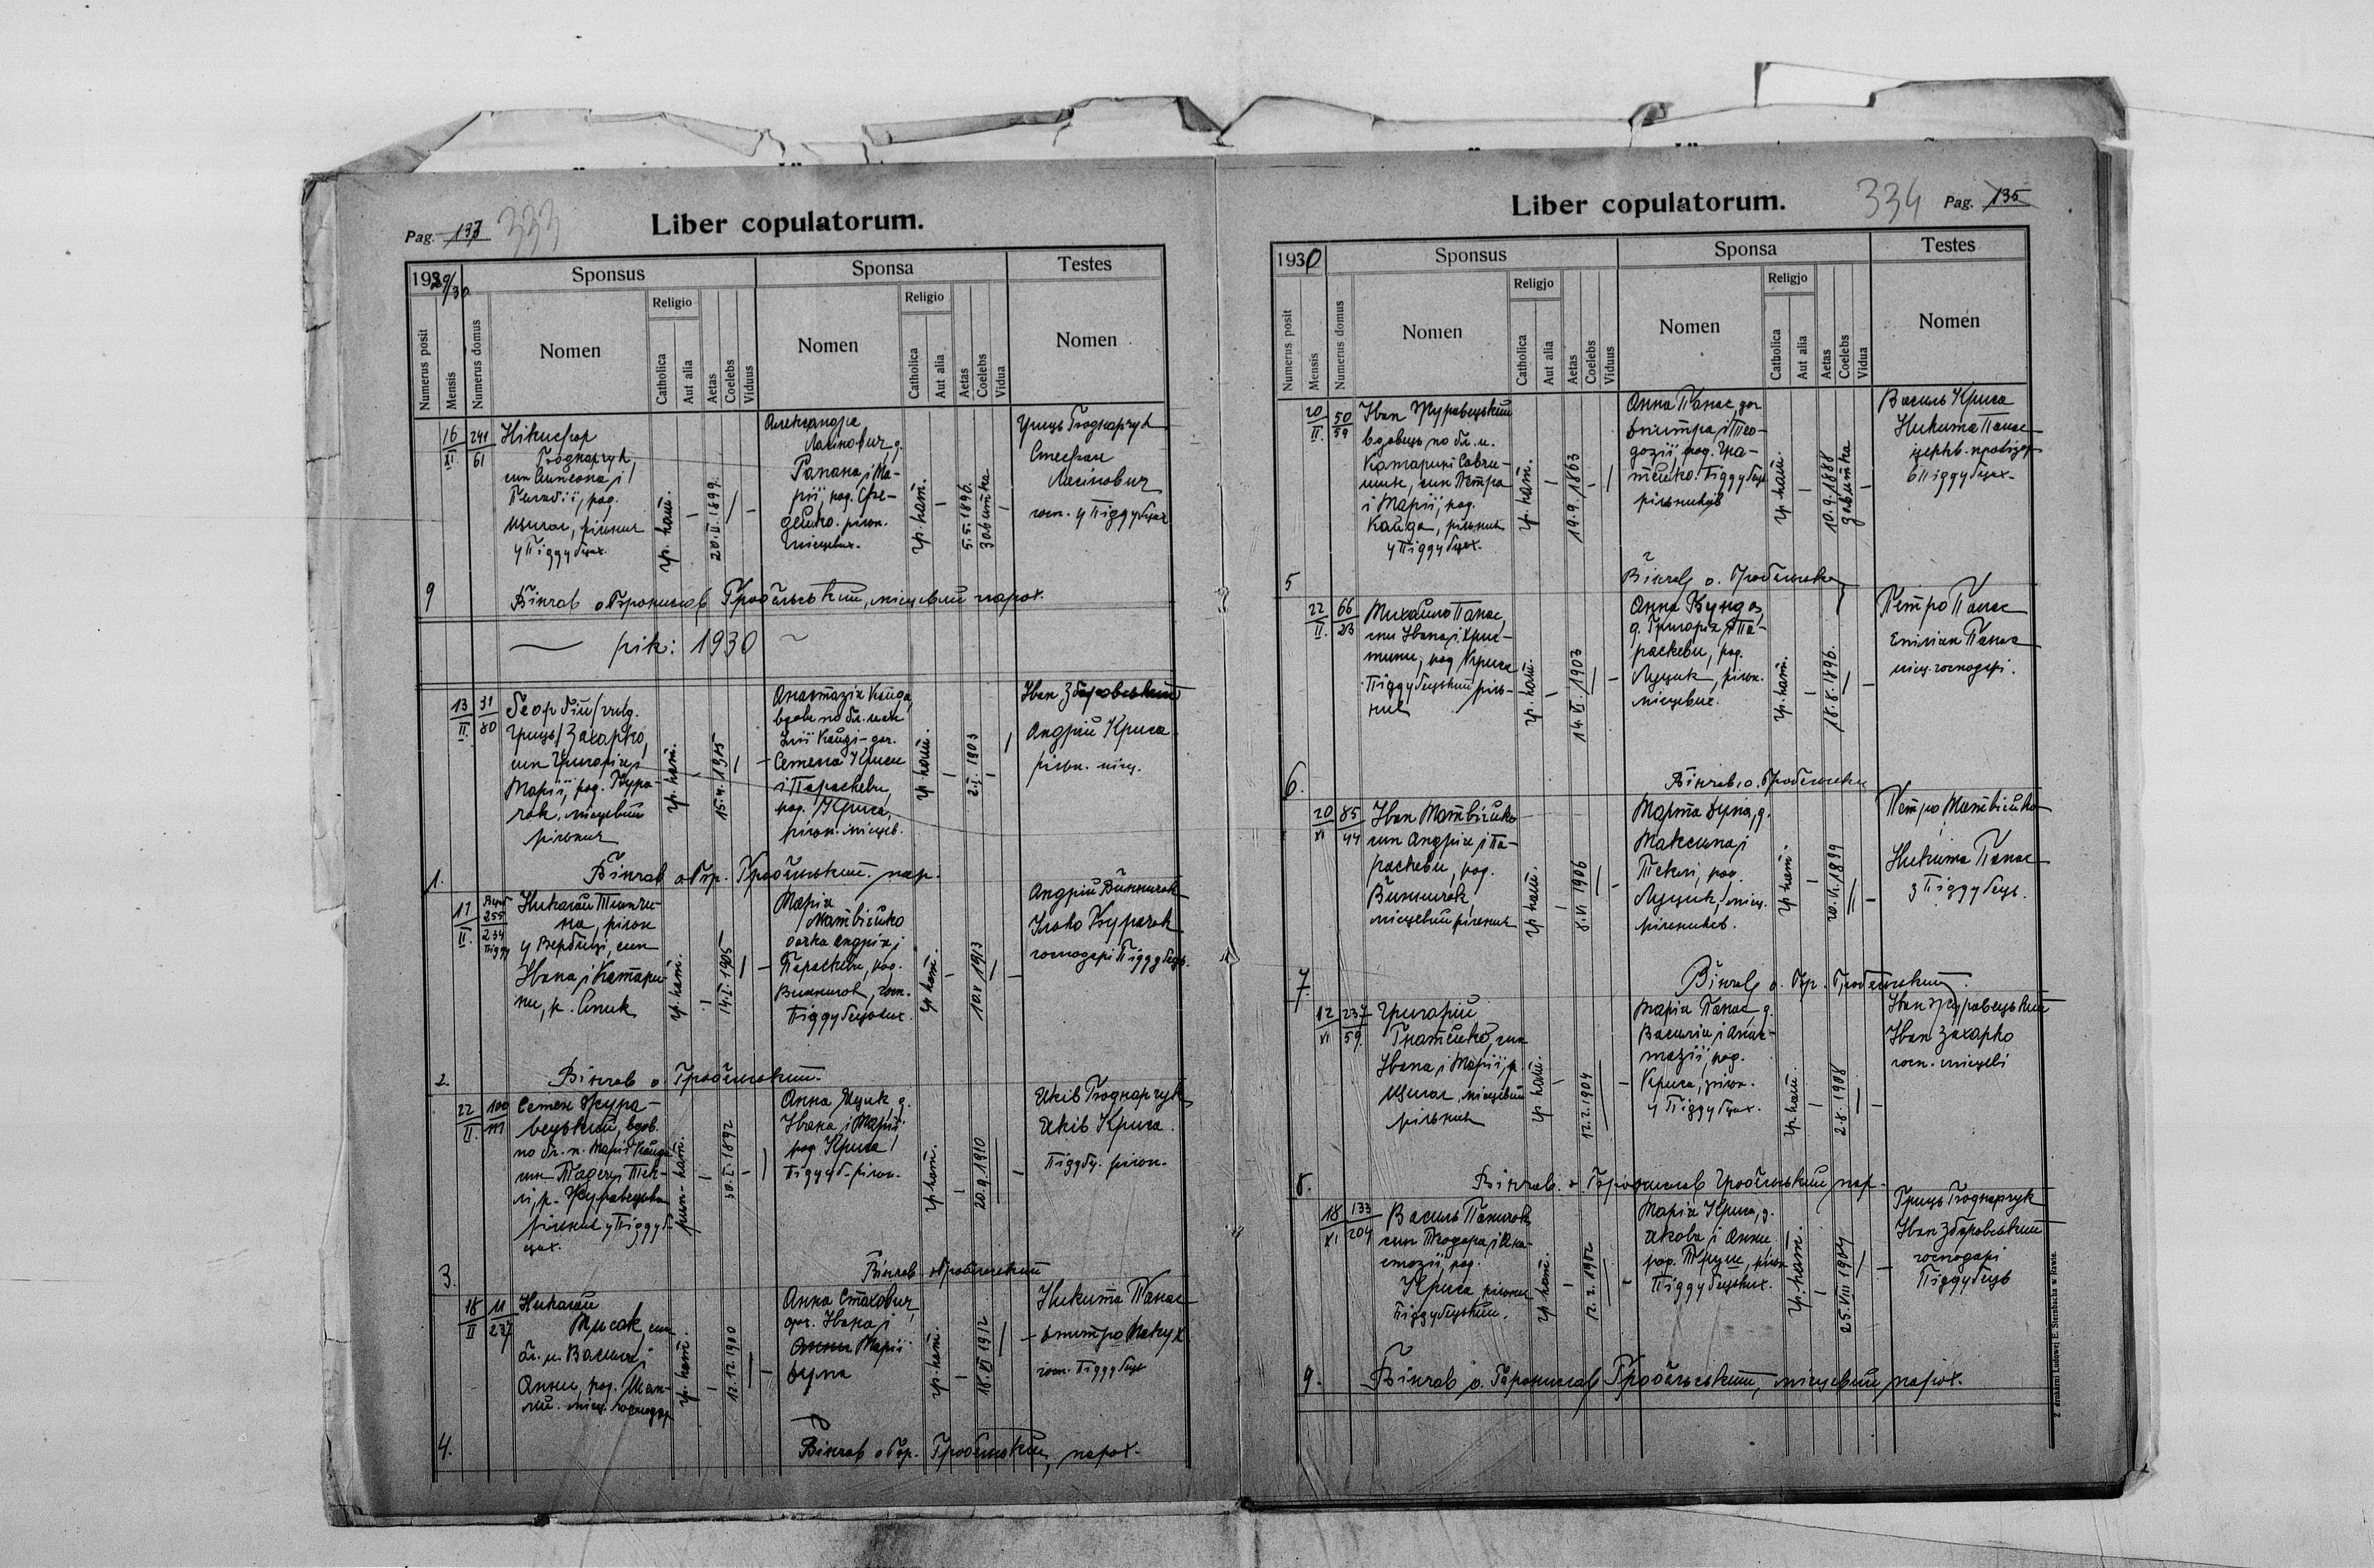 Pag. 137 333
Liber copulatorum.
1929/30
Sponsus
Sponsa
Testes
Numerus posit
Mensis
Numerus domus
Nomen
Religio
Catholica
Aut alia
Aetas
Coelebs
Viduus
Nomen
Religio
Catholica
Aut alia
Aetas
Coelebs
Vidua
Nomen
9
16/XI
241/61
Нікифор
Боднарчук
син Симеона і
рільник
у Піддубцях.
гр. кат.
20.II.1899.
Александра
Лясікович, д.
Романа і Ма-
рії, род.
рільн.
місцевих.
гр. кат.
5.5.1896.
Гриць Боднарчук
Стефан
Лясікович
госп. у Піддубцях
Вінчав о Броnислав Гробельський, місцевий парох.
рік: 1930
1.
13/II.
31/80
Георгій /вулg.
Гриць/ Захарко,
син Григорія і
Марії, род. Кура-
чок, місцевий
рільник
гр. кат.
15.4.1905
Анастазія Кайда,
вдова по бл. пам
Ілії Кайді - доч.
Семена Криси
і Параскеви,
род. Криса,
рільн. місцев.
гр. кат.
2.I.1903
Іван Збаровський
Андрій Криса
рільн. місц.
Вінчав о Бр. Гробельський. пар.
2.
17/II.
255
234
Піддуб
Николай
на, рільн
у Вербиці, син
Івана і Катари-
ни, р.
гр. кат.
14.I.1905
Марія
Матвійико
дочка Андрія і
Параскеви, род.
Винничок, госп.
Піддубецьких.
гр. кат.
10.V.1913
Андрій Винничок
Ілько Курачок
господарі Піддубець.
Вінчав о. Гробельський.
3.
22/II.
100/111
Семен Жура-
вецький, вдов.
по бл. п. Марії Кайді
син Тадея і Тек-
лі, р. Журавецька
рільник у Піддуб-
цях.
рим-кат.
30.I.1892
Анна Яцик, д.
Івана і Марії
род Криса
Піддуб. рільн.
гр. кат.
20.9.1910
Яків Боднарчук
Яків Криса.
Піддуб. рільн.
Вінчав о Гробельський
4.
18/II
11/237
Николай
Мисак, син
бл. п. Василя і
Анни, род.
місц. господар
гр. кат.
12.12.1900
Анна Стахович,
доч. Івана і
Анни Марії
Дума
гр. кат.
18.VI.1912
Никита Панас
Дмитро Пакух
госп. Піддубець
Вінчав о Бр. Гробельський, парох.
Liber copulatorum.
334 Pag. 135
1930
Sponsus
Sponsa
Testes
Numerus posit
Mensis
Numerus domus
Nomen
Religjo
Catholica
Aut alia
Aetas
Coelebs
Viduus
Nomen
Religjo
Catholica
Aut alia
Aetas
Coelebs
Vidua
Nomen
5
20/II.
50/59
Іван Журавецький
вдовець по бл. п.
Катарині
син Петра
і Марії, род.
Кайда, рільник
у Піддубцях.
гр. кат.
19.9.1863
Анна Панас, доч
Дмитра і Тео-
дозії, род. Гна-
тейко. Піддубец
рільників
гр. кат.
10.9.1888
Василь Криса
Никита Панас
церкв. провізор
в Піддубцях.
Вінчав о. Гробельський
6.
22/II.
66/23
Михайло Панас,
син Івана і Хрис-
тини, род Криса
Піддубецький ріль-
ник
гр. кат.
14.VI.1903
Анна Кунда,
д. Григорія і Па-
раскеви, род.
Луцик, рільн.
місцевих.
гр. кат.
18.8.1896.
Петро Панас
Еміліан Панас
місц. господарі.
Вінчав о. Гробельський
7.
20/XI
85/44
Іван Матвійико
син Андрія і Па-
раскеви, род.
Винничок,
місцевий рільник
гр кат.
8.VI 1906
Марта Дума, д.
Максима і
Теклі, род.
Луцик, місц.
рільників.
гр кат.
20.VI.1899
Петро Матвійико
Никита Панас
з Піддубець.
Вінчав о. Бр. Гробельський.
8.
12/XI
237/59.
Григорій
Гнатейко, син
Івана і Марії, р.
місцевий
рільник
гр кат.
12.2.1904
Марія Панас, д.
Василя і Анас-
тазії, род.
Криса, рільн.
у Піддубцях.
гр. кат.
2.8.1908
Іван Журавецький
Іван Захарко
госп. місцеві
Вінчав. о. Броnислав Гробельський пар.
9.
18/XI
133/204
Василь Паничок
син Теодора і Ана-
стазії, род.
Криса, рільник
Піддубецький.
гр кат.
12.2.1902
Марія Криса, д.
Якова і Анни
род. рільн
Піддубецьких.
гр. кат.
25.VIII 1904
Гриць Боднарчук
Іван Збаровський
господарі
Піддубець
Вінчав о. Броnислав Гробельський, місцевий парох.
Z drukarni Ludowej E. Sternbacha w Rawie.